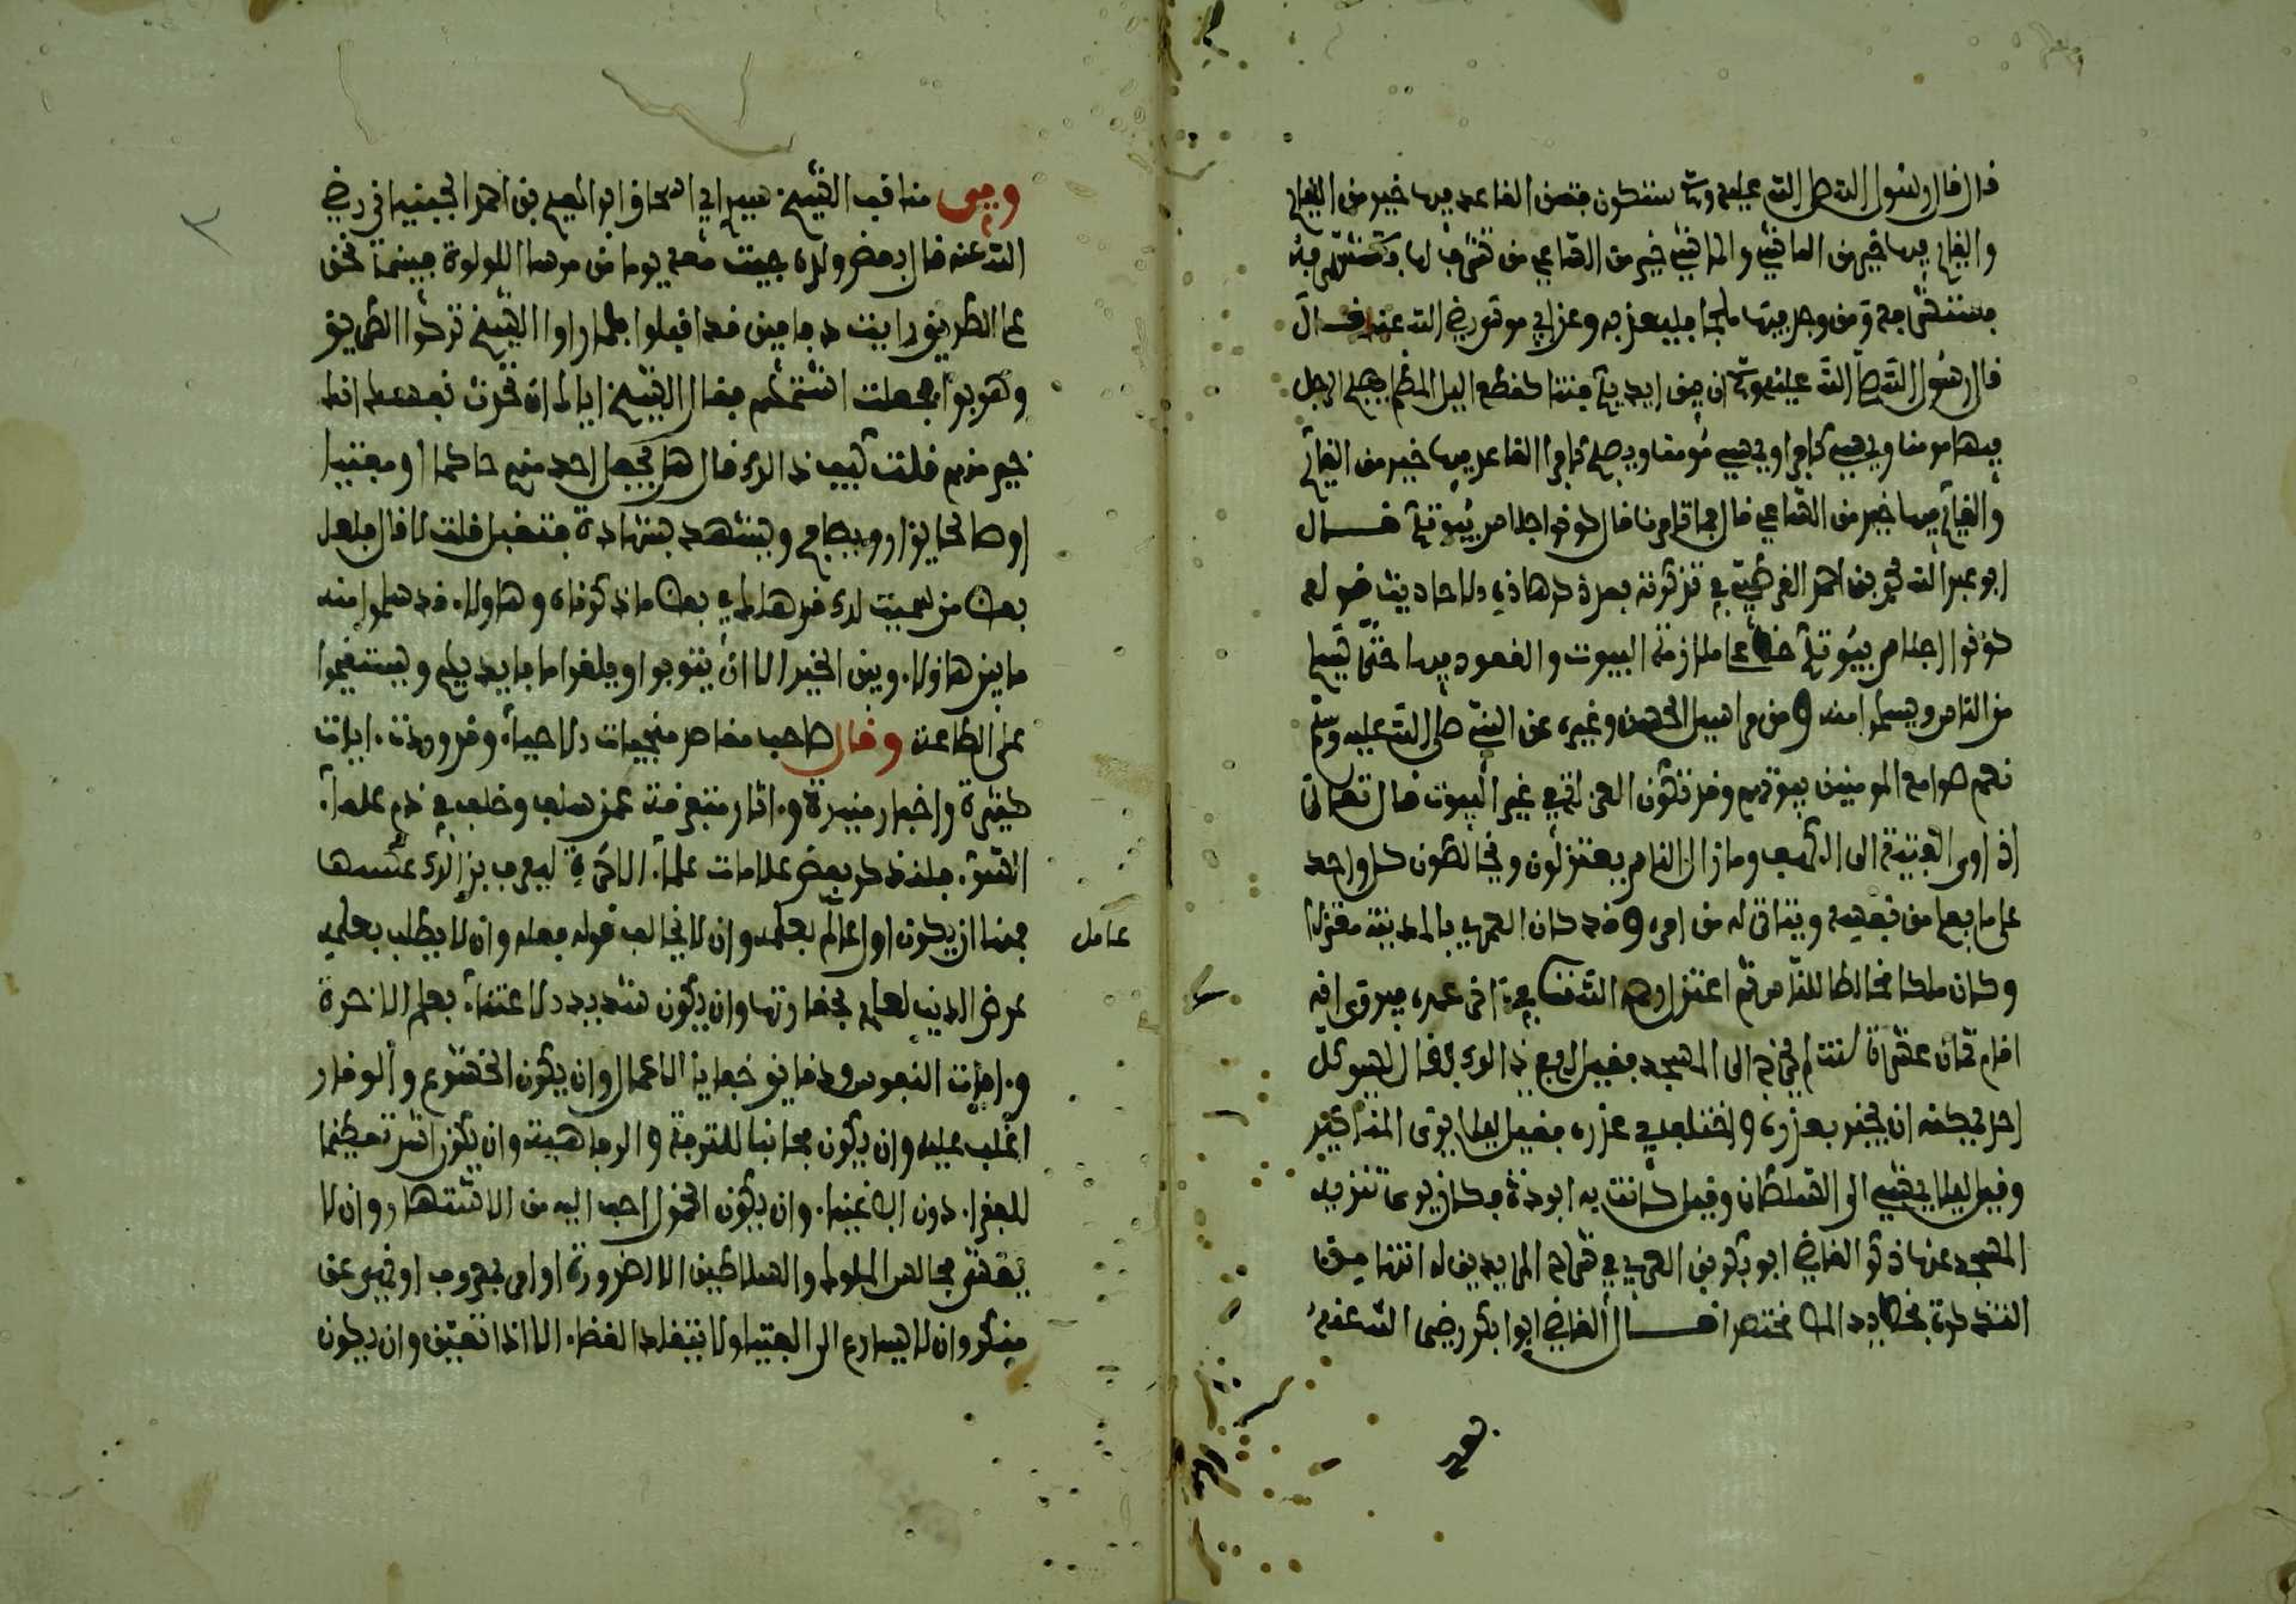 قال قال رسول الله صلى الله عليه وسلم ستكون فتن القاعد فيها خير من القايم
والقايم فيها خير من الماشي والماشي خير من الساعي من تشرف لها تستشرفه
فمن وجد فيها ملجأ فليعذ به وعن ابي موسى رضي الله عنه قال
قال رسول الله صلى الله عليه وسلم ان بين ايديكم فتنا كقطع اليل المظلم يصبح الرجل
فيها مومنا ويمسي كافرا ويمسي مومنا ويصبح كافرا القاعد فيها خير من القايم
والقايم فيها خير من الساعي قال فما تامرنا قال كونوا احلاس بيوتكم قال
ابو عبد الله محمد بن احمد القرطبي في تذكرته بعد ذكر هاذه الاحاديث قوله
كونوا احلاس بيوتكم حض على ملازمة البيوت والقعود فيها حتى يسلم
من الناس ويسلموا منه ومن مراسيل الحسن وغيره عن النبي صلى الله عليه وسلم
نعم صوامع المومنين بيوتهم وقد تكون العزلة في غير البيوت قال تعالى
اذ اوى الفتية الى الكهف وما زال الناس يعتزلون ويخالطون كل واحد
على ما يعلم من نفسه ويتاتى له من امره وقد كان العمري بالمدينة معتزلا
وكان ملك مخالطا للناس ثم اعتزل رحمه الله في اخر عمره فيروى انه
اقام ثمان عشرة سنة لم يخرج الى المسجد فقيل له في ذالك فقال ليس كل
احد يمكنه ان يخبر بعذره واختلف في عذره فقيل ليلا يرى المناكير
وقيل ليلا يمشي الى السلطان وقيل كانت به ابردة فكان يرى تنزيه
المسجد عنها ذكره القاضي ابو بكر بن العربي في سراج المريدين له انتهى من
التذكرة مختصرا قال القاضي ابو بكر رضي الله عنه
ومن مناقب الشيخ سيدي ابي اسحاق ابراهيم بن احمد الجبنياني رضي
الله عنه قال بعض ولده جيت معه يوما من مرسى اللولوة فبينما نحن
على الطريق رايت قد اقبلوا فلما راوا الشيخ تركوا الطريق
وهربوا فجعلت اشتمهم فقال الشيخ اياك ان تحدث نفسك انك
خير منهم فقلت كيف ذالك قال هل يجعل احد منهم حاكما او مفتيا
او صالحا يزار ويصافح ويستشهد بشهادة فتقبل قلت لا قال فلعل
بعض من سميت لك قد هلك في بعض ما ذكرناه وهاولاء قد سلموا منه
ما بين هاولاء وبين الخير الا ان يتوبوا ويلقوا ما بايديهم ويستقيموا
على الطاعة وقال صاحب مقاصد منجيات الاحياء وقد وردت ايات
كثيرة واخبار منيرة واثار متفرقة عن سلف وخلف في ذم علماء
السوء فلنذكر بعض علامات علماء الاخرة ليعرف بذالك عكسها
فمنها ان يكون اول عامل بعلمه وان لا يخالف قوله فعله وان لا يطلب بعلمه
عرض الدنيا لعلمه بحقارتها وان يكون شديد الاعتناء بعلم الاخرة
وافات النفوس ودقايق خفايا الاعمال وان يكون الخشوع والوقار
اغلب عليه وان يكون مجانبا للترفه والرفاهية وان يكون اشد تعظيما
للفقراء دون الاغنياء وان يكون الخمول احب اليه من الاشتهار وان لا
يغشى مجالس الملوك والسلاطين الا لضرورة او امر بمعروف او نهي عن
منكر وان لا يسارع الى الفتيا ولا يتقلد القضاء الا اذا تعين وان يكون
عامل